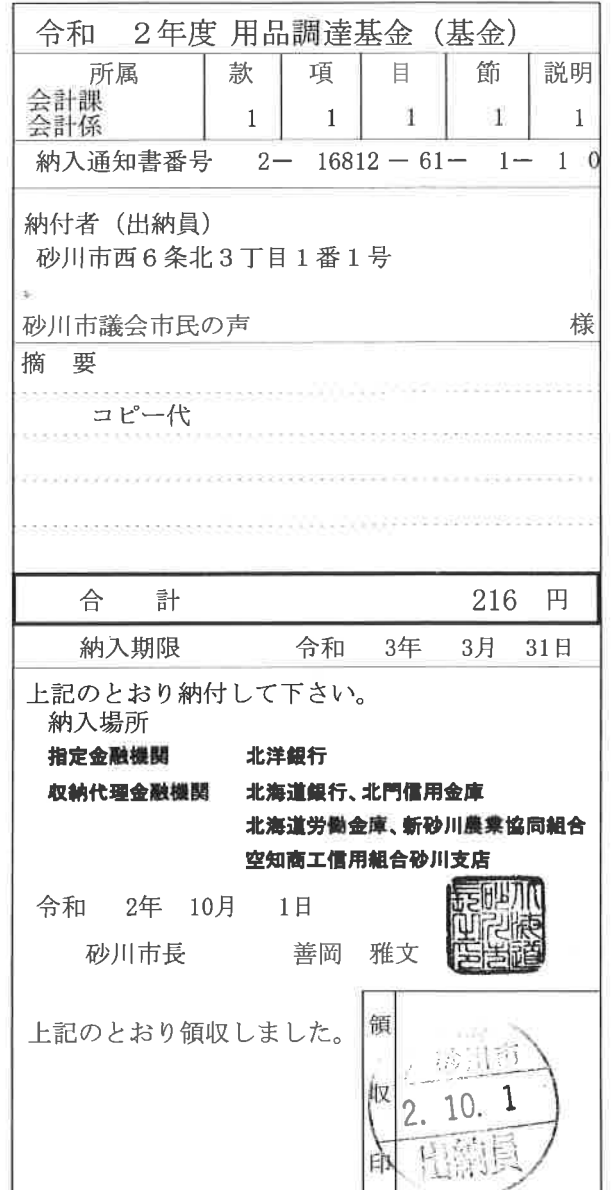 令和　2年度 用品調達基金（基金）
所属 款 項 目 節 説明
会計課
会計係 1 1 1 1 1
納入通知書番号 2－ 16812－61－ 1－ 1 0
納付者（出納員）
砂川市西6条北3丁目1番1号
砂川市議会市民の声 様
摘　要
コピー代
合　計 216 円
納入期限 令和 3年 3月 31日
上記のとおり納付して下さい。
納入場所
指定金融機関 北洋銀行
収納代理金融機関 北海道銀行、北門信用金庫
北海道労働金庫、新砂川農業協同組合
空知商工信用組合砂川支店
令和 2年 10月 1日
砂川市長 善岡 雅文
北海道砂川市長之印
上記のとおり領収しました。
領収印
砂川市
2. 10. 1
出納員